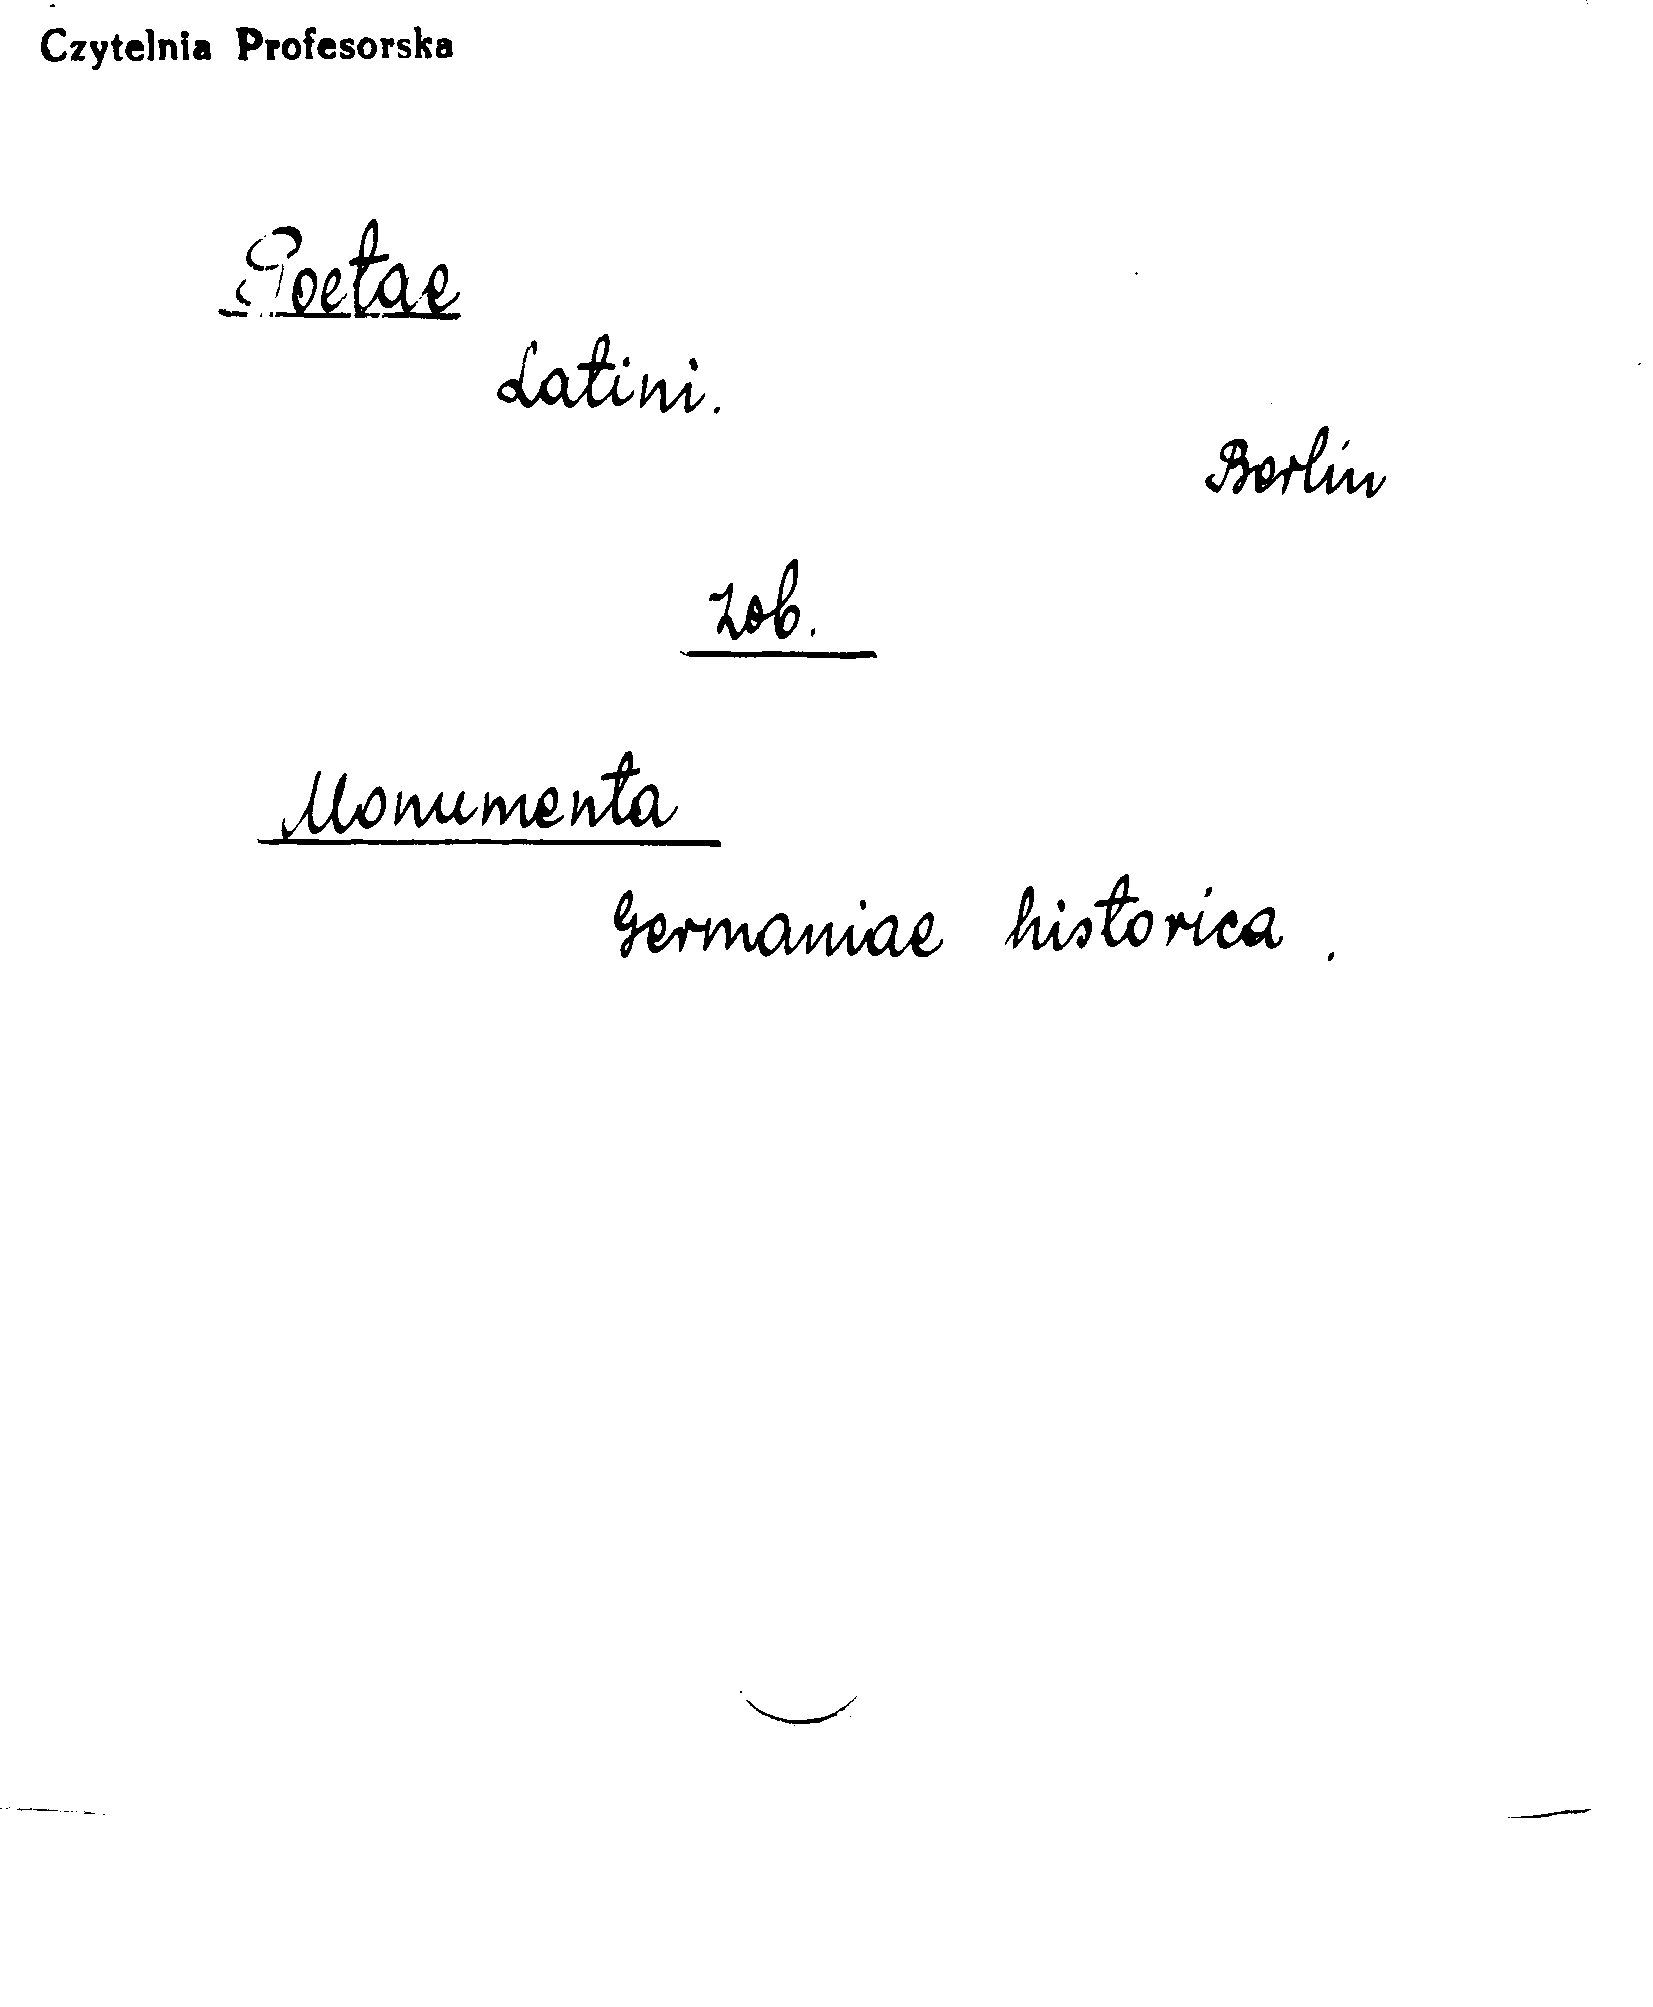 Czytelnia Profesorska
Poetae
Latini.
Berlin
zob.
Monumenta
Germaniae historica.